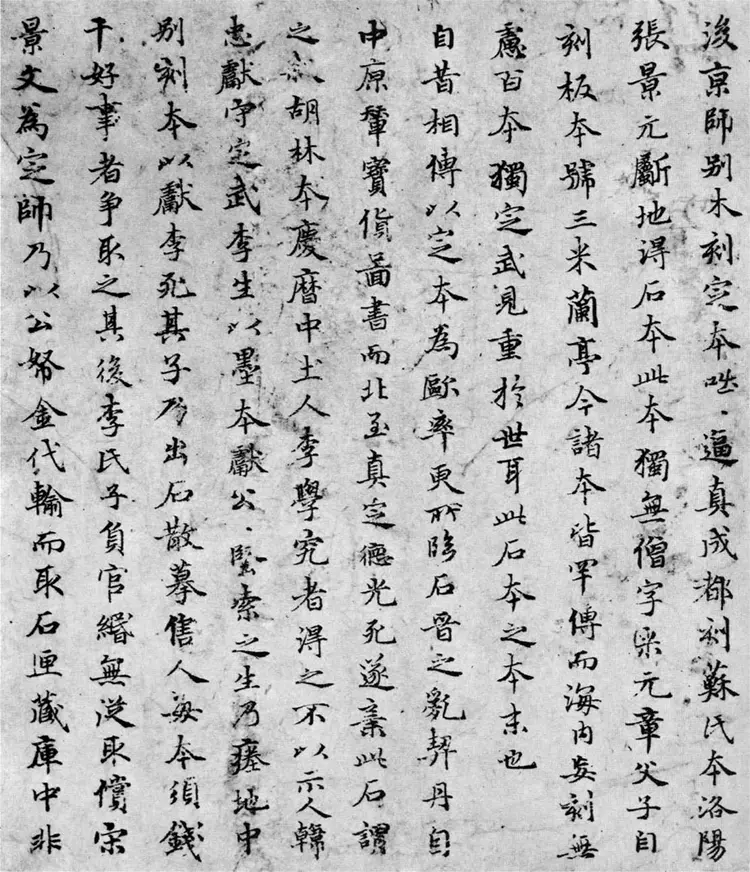 後京師別木刻定本咄〻逼真成都刻蘇氏本洛陽
張景元斸地得石本此本獨無僧字米元章父子自
刻板本號三米蘭亭今諸本皆罕傳而海内妄刻無
慮百本獨定武見重於世耳此石本之本末也
自昔相傳以定本為歐率更所臨石晉之亂契丹自
中原輦寶貨圖書而北至真定德光死遂棄此石謂
之殺胡林本慶曆中土人李學究者得之不以示人韓
忠獻守定武李生以墨本獻公〻堅索之生乃瘞地中
別刻本以獻李死其子乃出石散摹售人每本須錢
千好事者争取之其後李氏子負官緡無從取償宋
景文為定師乃以公帑金代輸而取石匣藏庫中非